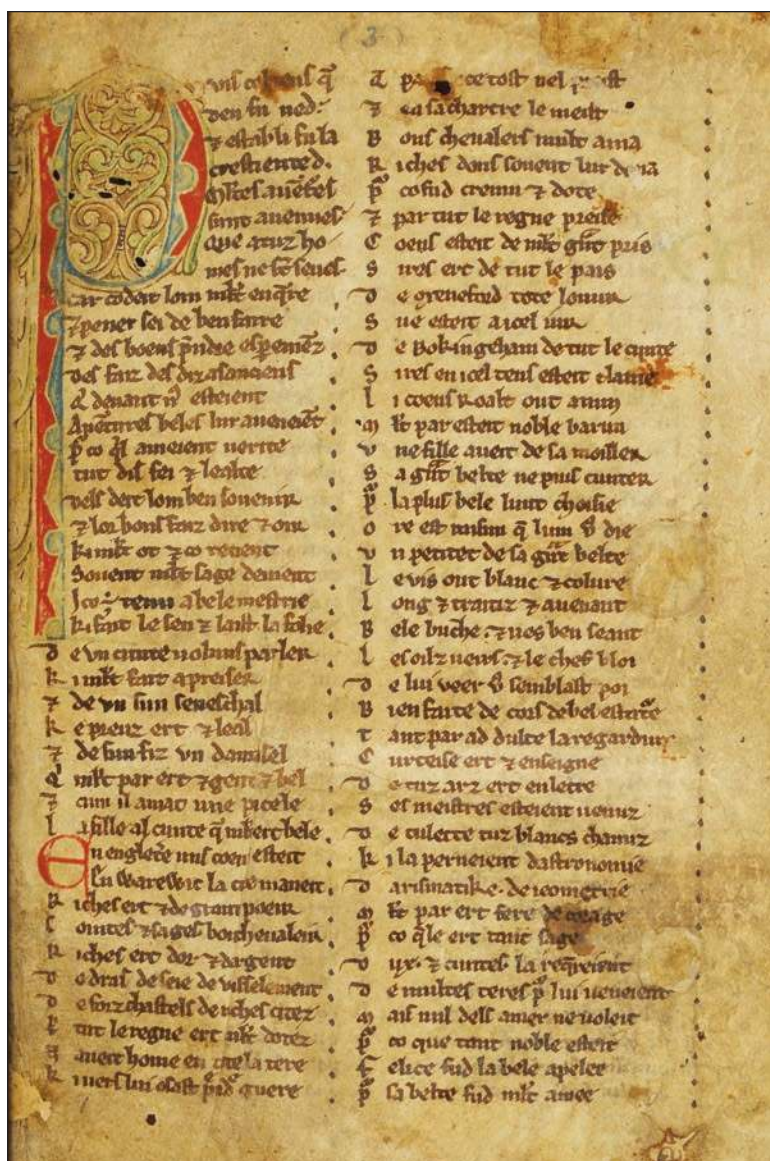 (3)
Puis cel tens q̄
deu fu ned
⁊ establi fu la
crestiented
Mltes auētes
sunt auenues
Que a tuz ho
mes ne sūt seues
Car co deit lom mlt enq̄re
⁊ pener sei de ben faire
⁊ des boens p̄ndre
des faiz des anciens
Q̄ deuant nꝰ esteient
Auētures beles lur aueneiēt
P̄ co q̄l ameient uerite
tut dis fei ⁊ lealte
dels deit lom ben souenir
⁊ lor bons faiz dire ⁊ oir
ki mlt ot ⁊ co retient
Souent mlt sage deuient
tenu a bele mestrie
ki fait le sen ⁊ laist la folie
de vn cunte uolums parler
k i mlt fait a preiser
⁊ de vn sun seneschal
k e preuz ert ⁊ leal
⁊ de sun fiz vn damisel
Q̄ mlt par ert ⁊ gent ⁊ bel
⁊ cum il amat une pucele
l a fille al cunte q̄ mlt ert bele
En englet̄e uns coens esteit
En warewic la cite maneit
R iches ert ⁊ de grant poeir
C ointes ⁊ sages bon cheualeir
R iches ert dor ⁊ dargent
d e dras de seie de uesselement
d e forz chastels de riches citez
P ar tut le regne ert mlt dotez
N aueit home en tote la tere
k i uers lui osast p̄ndre guere
Q ce tost nel
⁊ en sa chartre le meist
B ons cheualers mult ama
R iches dons souent lur dona
P̄ co fud cremu ⁊ dote
⁊ par tut le regne preise
C oens esteit de mlt gn̄t pris
S ires ert de tut le pais
d e oxeneford tote lonur
S ue esteit a icel iur
d e Bokingeham de tut le cunte
S ires en icel tens esteit clame
l i coens Roalt out a nun
m lt par esteit noble barun
v ne fille aueit de sa moiller
S a gn̄t belte ne puis cunter
P̄ la plus bele lunt choisie
O re est raisun q̄ lum vꝰ die
v n petitet de sa gn̄t belte
l e uis out blanc ⁊ colure
l ong ⁊ traitiz ⁊ auenant
B ele buche ⁊ nes ben seant
l es oilz ueirs ⁊ le chef bloi
d e lui ueer vꝰ semblast poi
B ien faite de cors de bel estat̄e
t ant par ad dulce la regardure
C urteise ert ⁊ enseigne
d e tuz arz ert enletre
S es meistres esteient uenuz
d e tulette tuz blancs chanuz
k i la perneient dastronomie
d arismatike de ieometrie
m lt par ert fere de corage
P̄ co q̄le ert tant sage
d ux ⁊ cuntes la req̄reient
d e multes teres p̄ lui ueneient
m ais nul dels amer ne uoleit
P̄ co que tant noble esteit
f elice fud la bele apelee
P̄ sa belte fud mlt amee